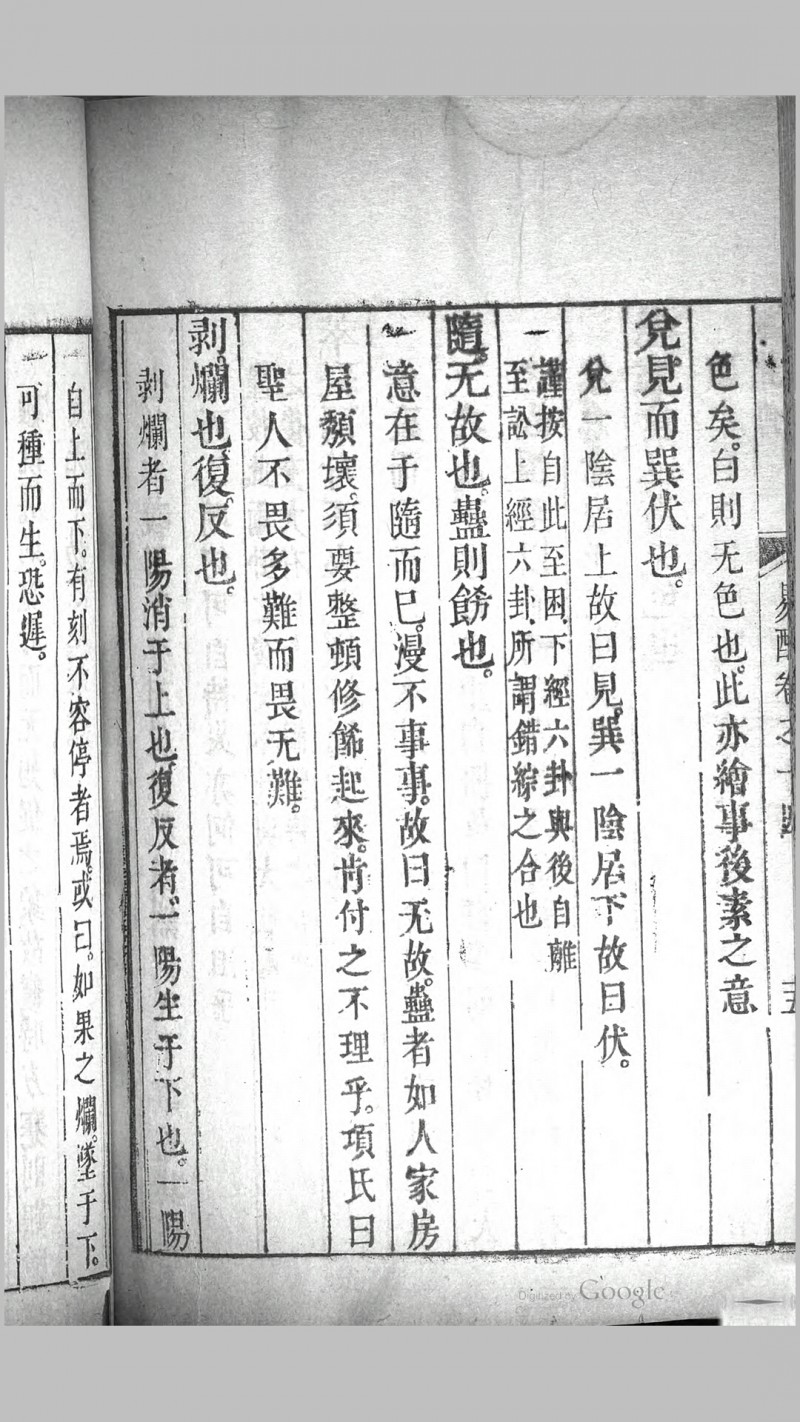 色矣。白則无色也。此亦繪事後素之意
兌見而巽伏也。
兌一陰居上故曰見。巽一陰居下故曰伏。
謹按自此至困、下經六卦與後自離
至訟上經六卦、所謂錯綜之合也
隨。无故也。蠱則飭也。
意在于隨而已。漫不事事。故曰无故。蠱者如人家房
屋頽壞。須要整頓修飾起來。肯付之不理乎。項氏曰
聖人不畏多難而畏无難。
剥。爛也。復。反也。
剥爛者一陽消于上也。復反者。一陽生于下也。一陽
自上而下。有刻不容停者焉。或曰。如果之爛。墜于下。
可種而生。恐遲。
Digitized by Google